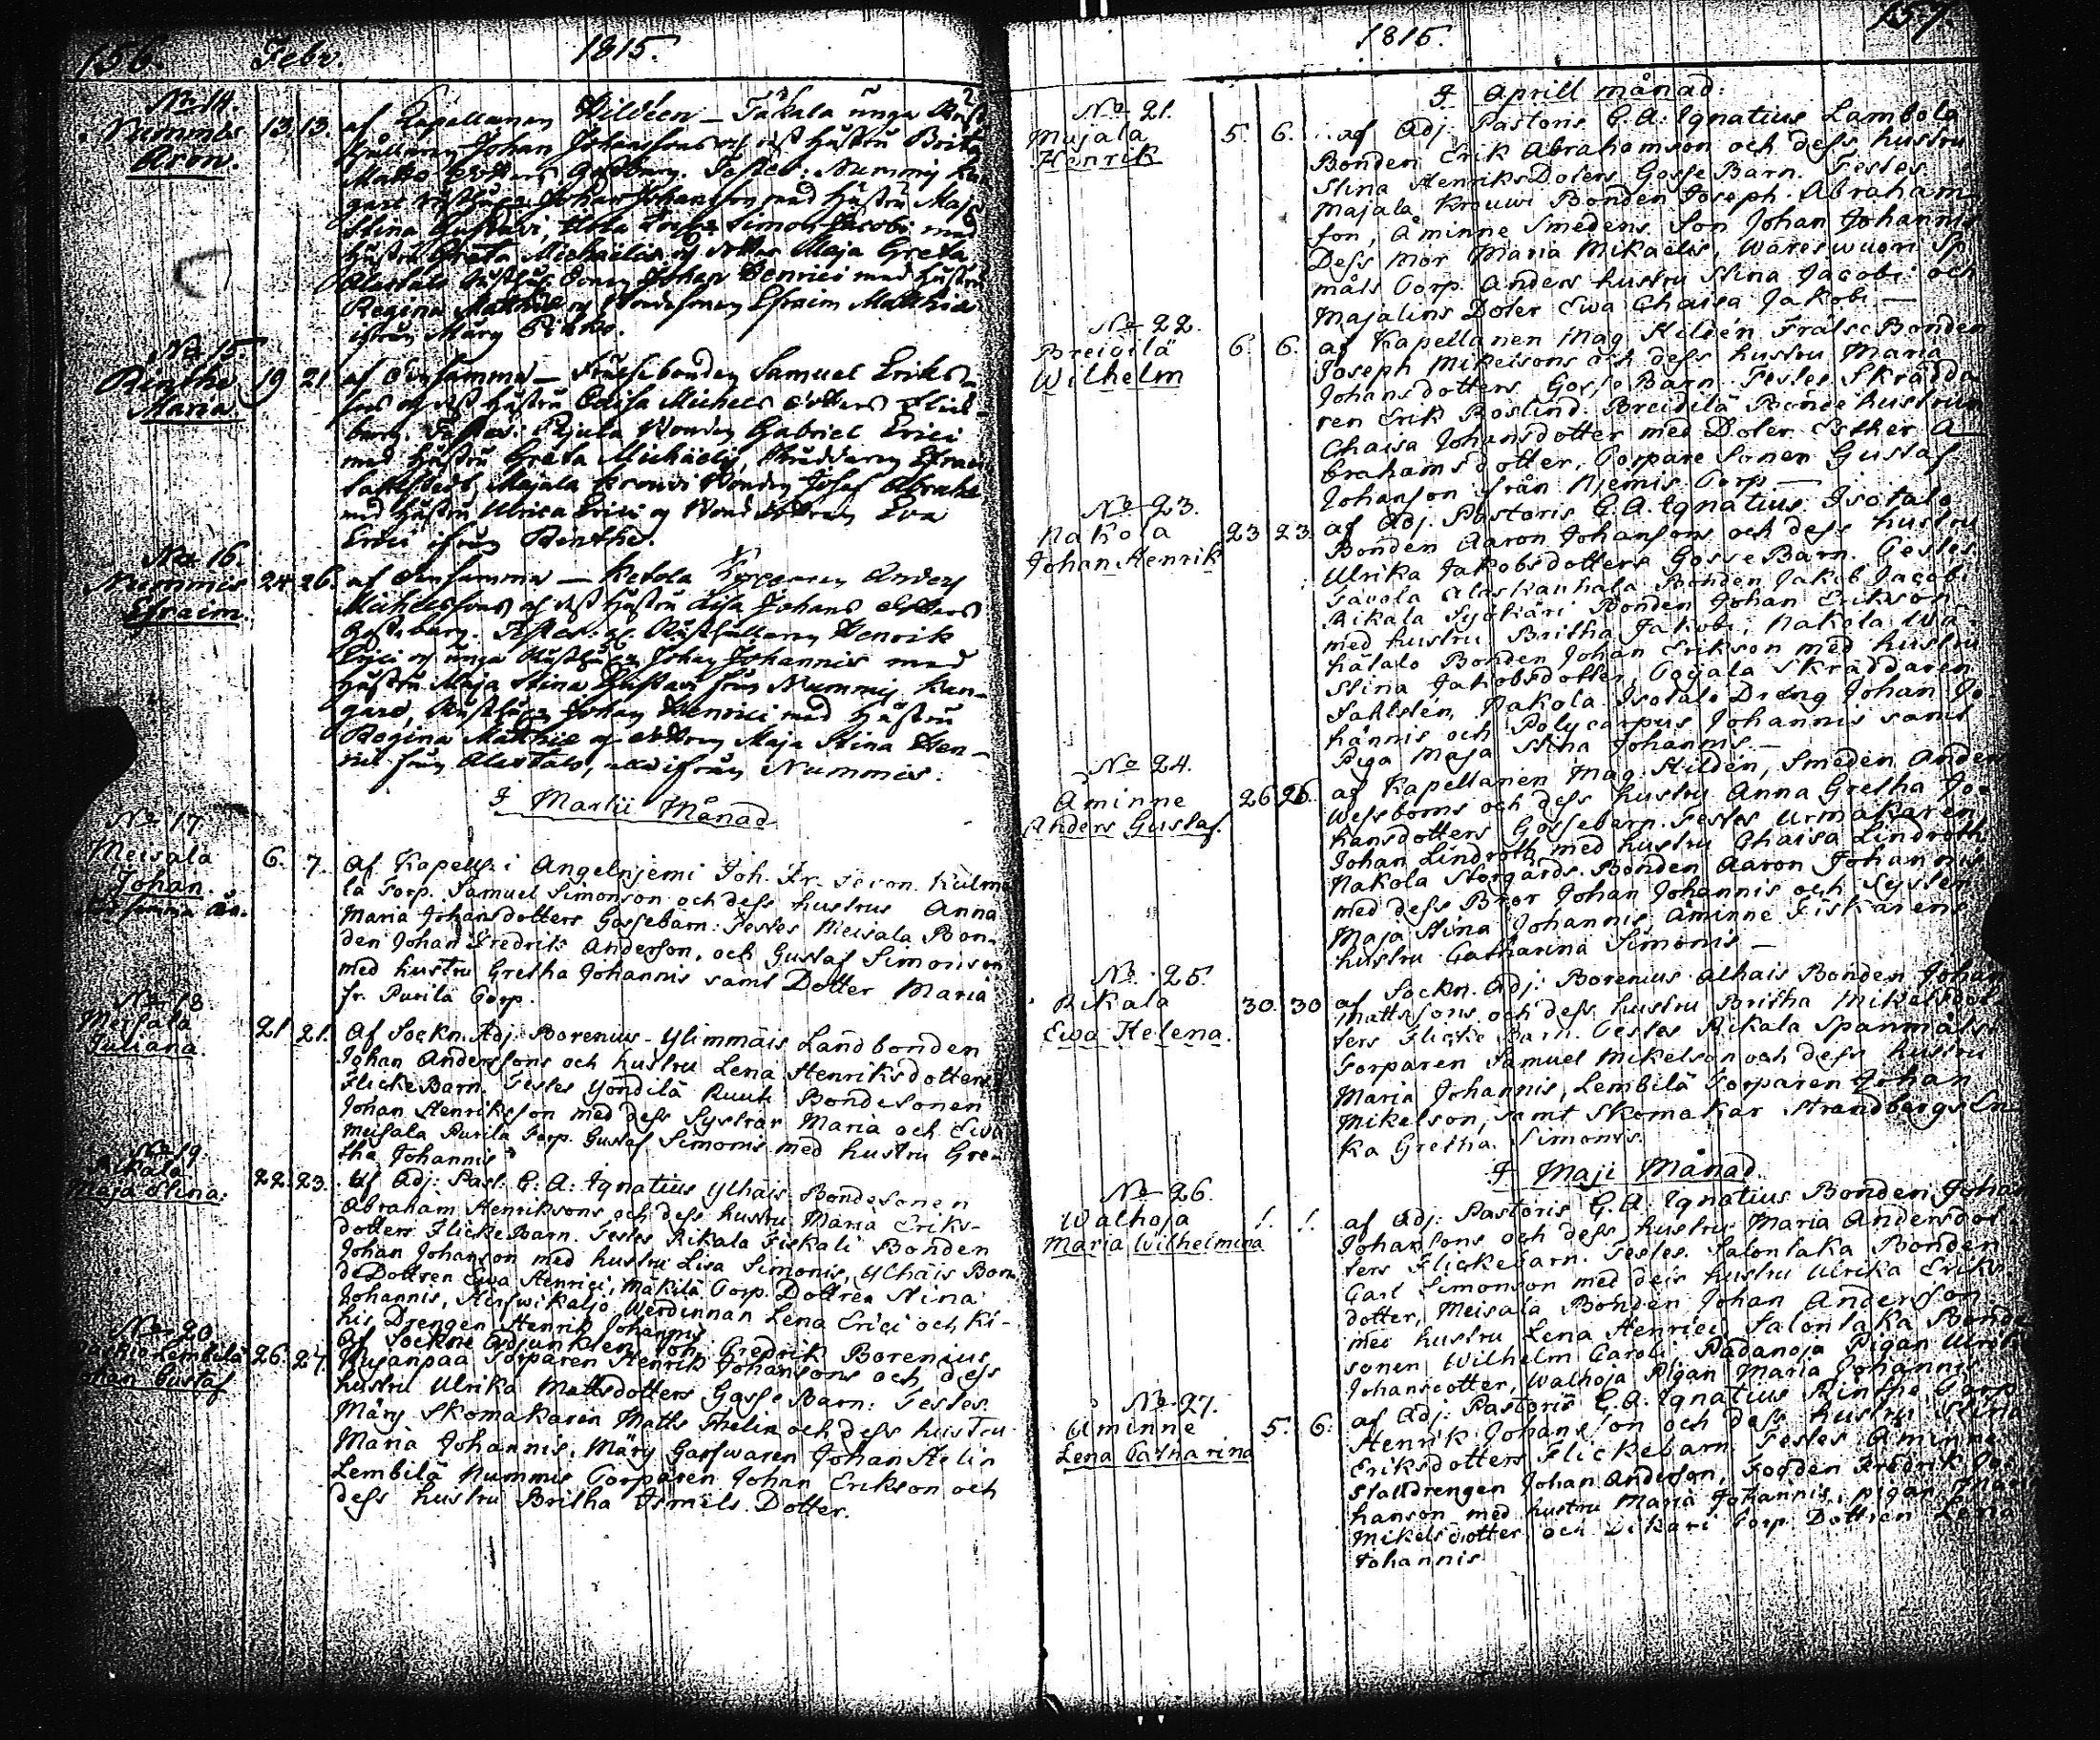 156. Febr. 1815.
No 14.
Nummis
Aron.
13. 13.
af Kapellanen Hildéen — Takala unga Rust
hållaren Johan Johanssons och dess hustru Brita
Matts dotters Gossebarn. Testes: Nummis Kan
gare Johan Johansson med hustru Maja
Stina Gustavi, Simon Jacobi med
hustru Greta Michaelis och dotter Maja Greta,
Alastalo Johan Henrici med hustru
Regina Matthiæ og Bondesonen Efraim Matthiæ
ifrån Märy
No 15.
Rinthe
Maria.
19 21
af densamme — Frälsebonden Samuel Eriks-
sons og dess hustru Caisa Michels dotters Flick-
barn. Testes: Pajula Bonden Gabriel Erici
med hustru Greta Michaelis, Skräddaren Efraim
Majala Krouvi Bonden Josef Abrahs.
med hustru Ulrica Erici og Bonddottren Eva
Erici ifrån Rinthe.
No 16.
Nummis
Efraim.
24. 26.
af densamme — Ketola Torparen Anders
Michelssons og dess hustru Caisa Johans dotters
Gossebarn. Testes: Rusthållaren Henrik
Erici og unga Johan Johannis med
hustru Maja Stina Gustavi från Nummis Kan-
gare, Johan Henrici med hustru
Regina Matthiæ og dottren Maja Stina Hen-
rici från Alastalo, ifrån Nummis.
I Martii Månad
No 17
Meisala
Johan.
6. 7.
Af Kapell: i Angelnjemi Joh. Fr. Kulma
la Torp. Samuel Simonson och dess hustrus Anna
Maria Johansdotters Gossebarn: Testes Meisala Bon-
den Johan Fredrik Andersson, och Gustaf Simonson
med hustru Gretha Johannis samt Dotter Maria
fr. Purila Torp.
No 18
Meisala
Juliana.
21 21.
Af Sockn. Adj: Borenius - Ylimmäis Landbonden
Johan Anderssons och hustru Lena Henriksdotters
Flicke Barn. Testes Yöndilä Ruuti Bondesonen
Johan Henriksson med dess Systrar Maria och Ewa
Meisala Purila Torp. Gustaf Simonis med hustru Gre-
tha Johannis
No 19.
Rikala
Maja Stina.
22. 23.
Af Adj: Past. E. A: Ignatius Ylhäis Bondesonen
Abraham Henriksons och dess hustru Maria Eriks-
dotters Flicke Barn. Testes Rikala Fiskali Bonden
Johan Johanson med hustru Lisa Simonis, Ylhäis Bon-
de Dottren Ewa Henrici, Mäkilä Torp. Dottren Stina
Johannis, Hirswikaljo Werdinnan Lena Erici och Ki-
his Drengen Henrik Johannis
No 20
Lembilä
Johan Gustaf
26. 27.
Af Sockne Adjunkten Joh. Fredrik Borenius
Kujanpaa Torparen Henrik Johansons och dess
hustru Ulrika Mattsdotters Gosse Barn: Testes.
Märy Skomakaren Matts Thelin och dess hustru
Maria Johannis. Märy Garfwaren Johan Helin
Lembilä Nummis Torparen Johan Erikson och
dess hustru Britha Ismels Dotter.
1815. 157.
I Aprill månad.
No 21.
Majala
Henrik
5. 6.
af Adj: Pastoris E. A: Ignatius Lambola
Bonden Erik Abrahamson och dess hustru
Stina Henriks Doters Gosse Barn. Testes
Majala Krouwi Bonden Joseph Abraham
son, Åminne Smedens Son Johan Johannis
Dess Mor Maria Mikaelis, Wareswuori Sp
måls Torp. Anders hustru Stina Jacobi och
Majalins Doter Ewa Chaisa Jakobi —
No 22.
Breidilä
Wilhelm
6. 6.
af Kapellanen Mag. Hildén Frälse Bonden
Joseph Mikelsons och dess hustru Maria
Johansdotters Gosse Barn. Testes Skrädda
ren Erik Roslind. Breidilä Bonde hustrun
Chaisa Johansdotter med Doter Esther A
brahamsdotter, Torpare Sonen Gustaf
Johanson från Njemis Torp —
No 23.
Nakola
Johan Henrik
23 23
af Adj: Pastoris E. A. Ignatius Isotalo
Bonden Aaron Johansons och dess hustru
Ulrika Jakobsdotters Gosse Barn. Testes
Tavola Alaskanhala Bonden Jakob Jacobi
Rikala Syökäri Bonden Johan Erikson
med hustru Britha Jakobi, Nakola Wä-
hätalo Bonden Johan Erikson med hustru
Stina Jakobsdotter, Pojala Skräddaren
Sahlstén, Nakola Isotalo Dreng Johan Jo
hannis och Polycarpus Johannis samt
Piga Maja Stina Johannis —
No 24.
Åminne
Anders Gustaf.
26 26.
af Kapellanen Mag. Hildén, Smeden Anders
Wessboms och dess hustru Anna Gretha Jo-
hansdotters Gossebarn. Testes Urmakaren
Johan Lindroth med hustru Chaisa Lindroth
Nakola Storgårds Bonden Aaron Johannis
med dess Bror Johan Johannis och Syster
Maja Stina Johannis Åminne Fiskarens
hustru Catharina Simonis —
No 25.
Rikala
Ewa Helena.
30. 30
af Sockn. Adj: Borenius Alhais Bonden Johan
Mattssons och dess hustru Britha Mikelsdot-
ters Flicke Barn. Testes Rikala Spanmåls
Torparen Samuel Mikelson och dess hustru
Maria Johannis, Lembilä Torparen Johan
Mikelson, samt Skomakar Strandbergs En
ka Gretha Simonis.
I Maji Månad.
No 26.
Walhoja
Maria Wilhelmina
1. 1.
af Adj: Pastoris E. A. Ignatius Bonden Johan
Johansons och dess hustru Maria Andersdot-
ters Flickebarn. Testes. Salontaka Bonden
Carl Simonson med dess hustru Ulrika Eriks-
dotter, Meisala Bonden Johan Andersson
med hustru Lena Henrici, Salontaka Bonde
sonen Wilhelm Caroli Padanoja Pigan Ulrika
Johansdotter, Walhoja Pigan Maria Johannis
No 27.
Åminne
Lena Catharina
5. 6.
af Adj: Pastoris E. A. Ignatius Rinthe Torp
Henrik Johansson och dess hustru Stina
Eriksdotters Flickebarn. Testes Åminne
Stalldrengen Johan Anderson, Fogden Fredrik Jo-
hanson med hustru Maria Johannis, pigan
Mikelsdotter och Dikari Torp Dottren Lena
Johannis